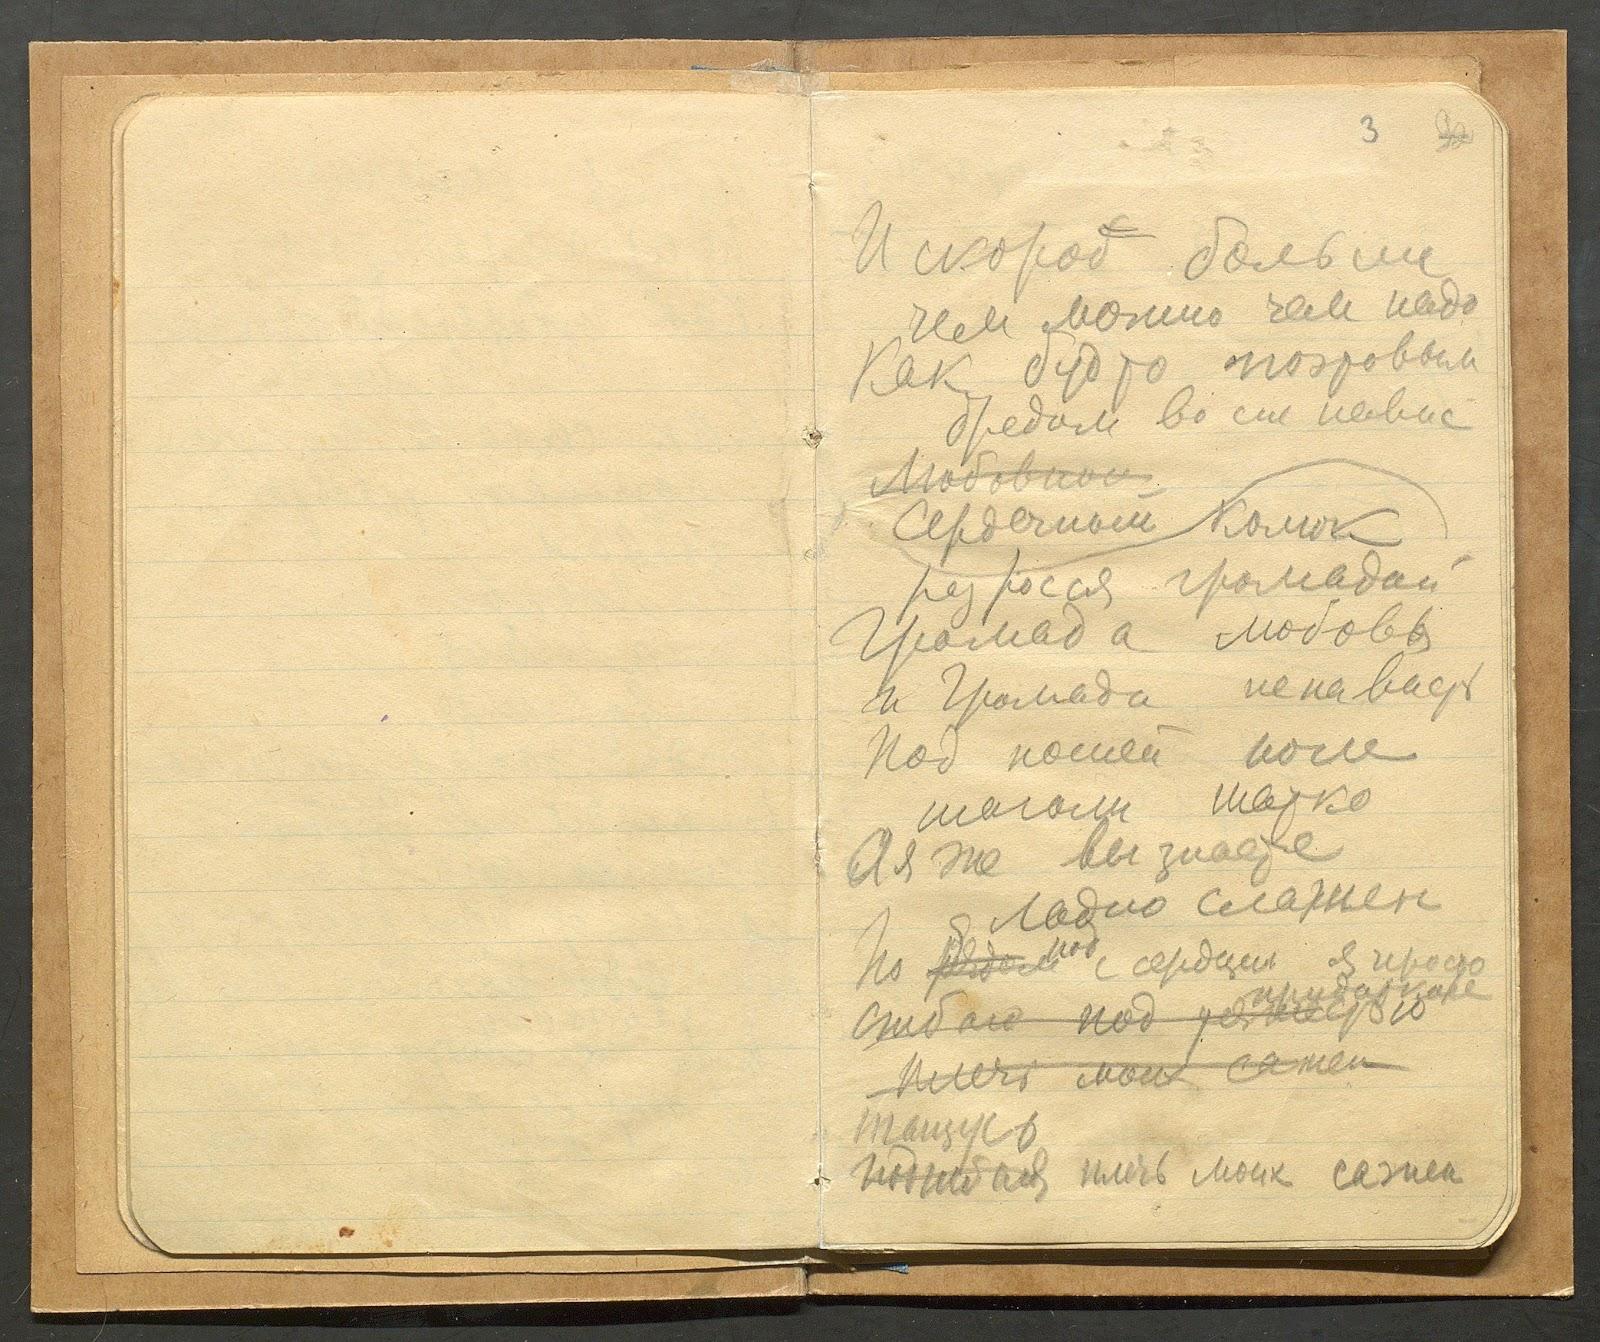 3
И скоро б больше
чем можно чем надо
Как будто поэтовым
бредом во сне навис
Любовный
Сердечный Комок
разросся громадой
Громада любовь
и Громада ненависть
Под ношей ноги
шагали шатко
А я же вы знаете
ладно слажен
Но рядом под с сердцем я просто
придатком
сгибаю под
плеч моих сажен
тащусь
подгибая плечь моих сажен